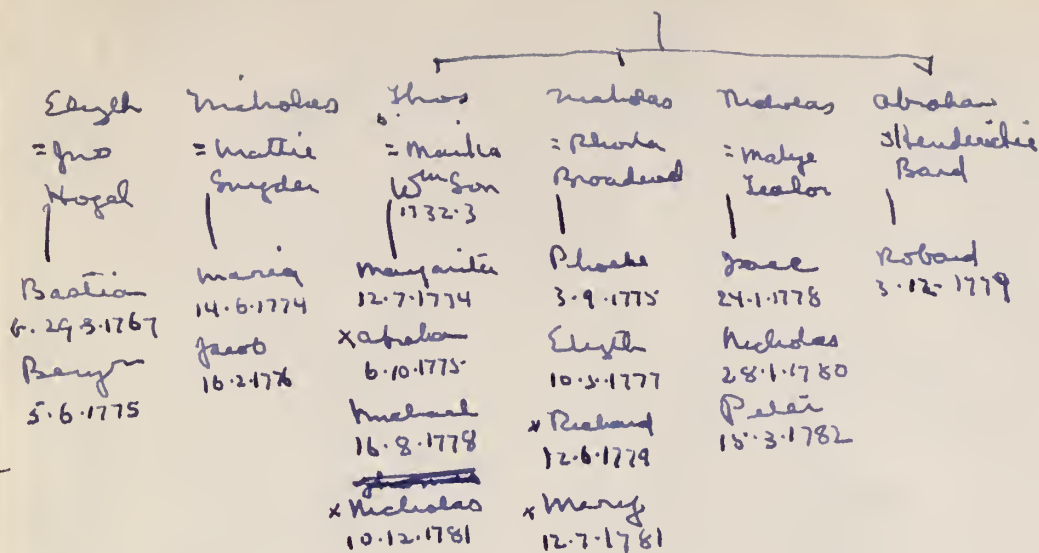 Elizth
= Jno
Hogal
Bastian
b. 29.3.1767
Benjn
5.6.1775
Nicholas
= Mattie
Snyder
Maria
14.6.1774
Jacob
16.2.1776
Thos
b.
= Marika
Wmson
1732.3
Margarita
12.7.1774
x Abraham
6.10.1775
Michael
16.8.1778
x Nicholas
10.12.1781
Nicholas
= Rhoda
Phoebe
3.9.1775
Elizth
10.3.1777
x Richard
12.6.1779
x Mary
12.7.1781
Nicholas
24.1.1778
Nicholas
28.1.1780
Peter
15.3.1782
Abraham
Band
Robard
3.12.1779